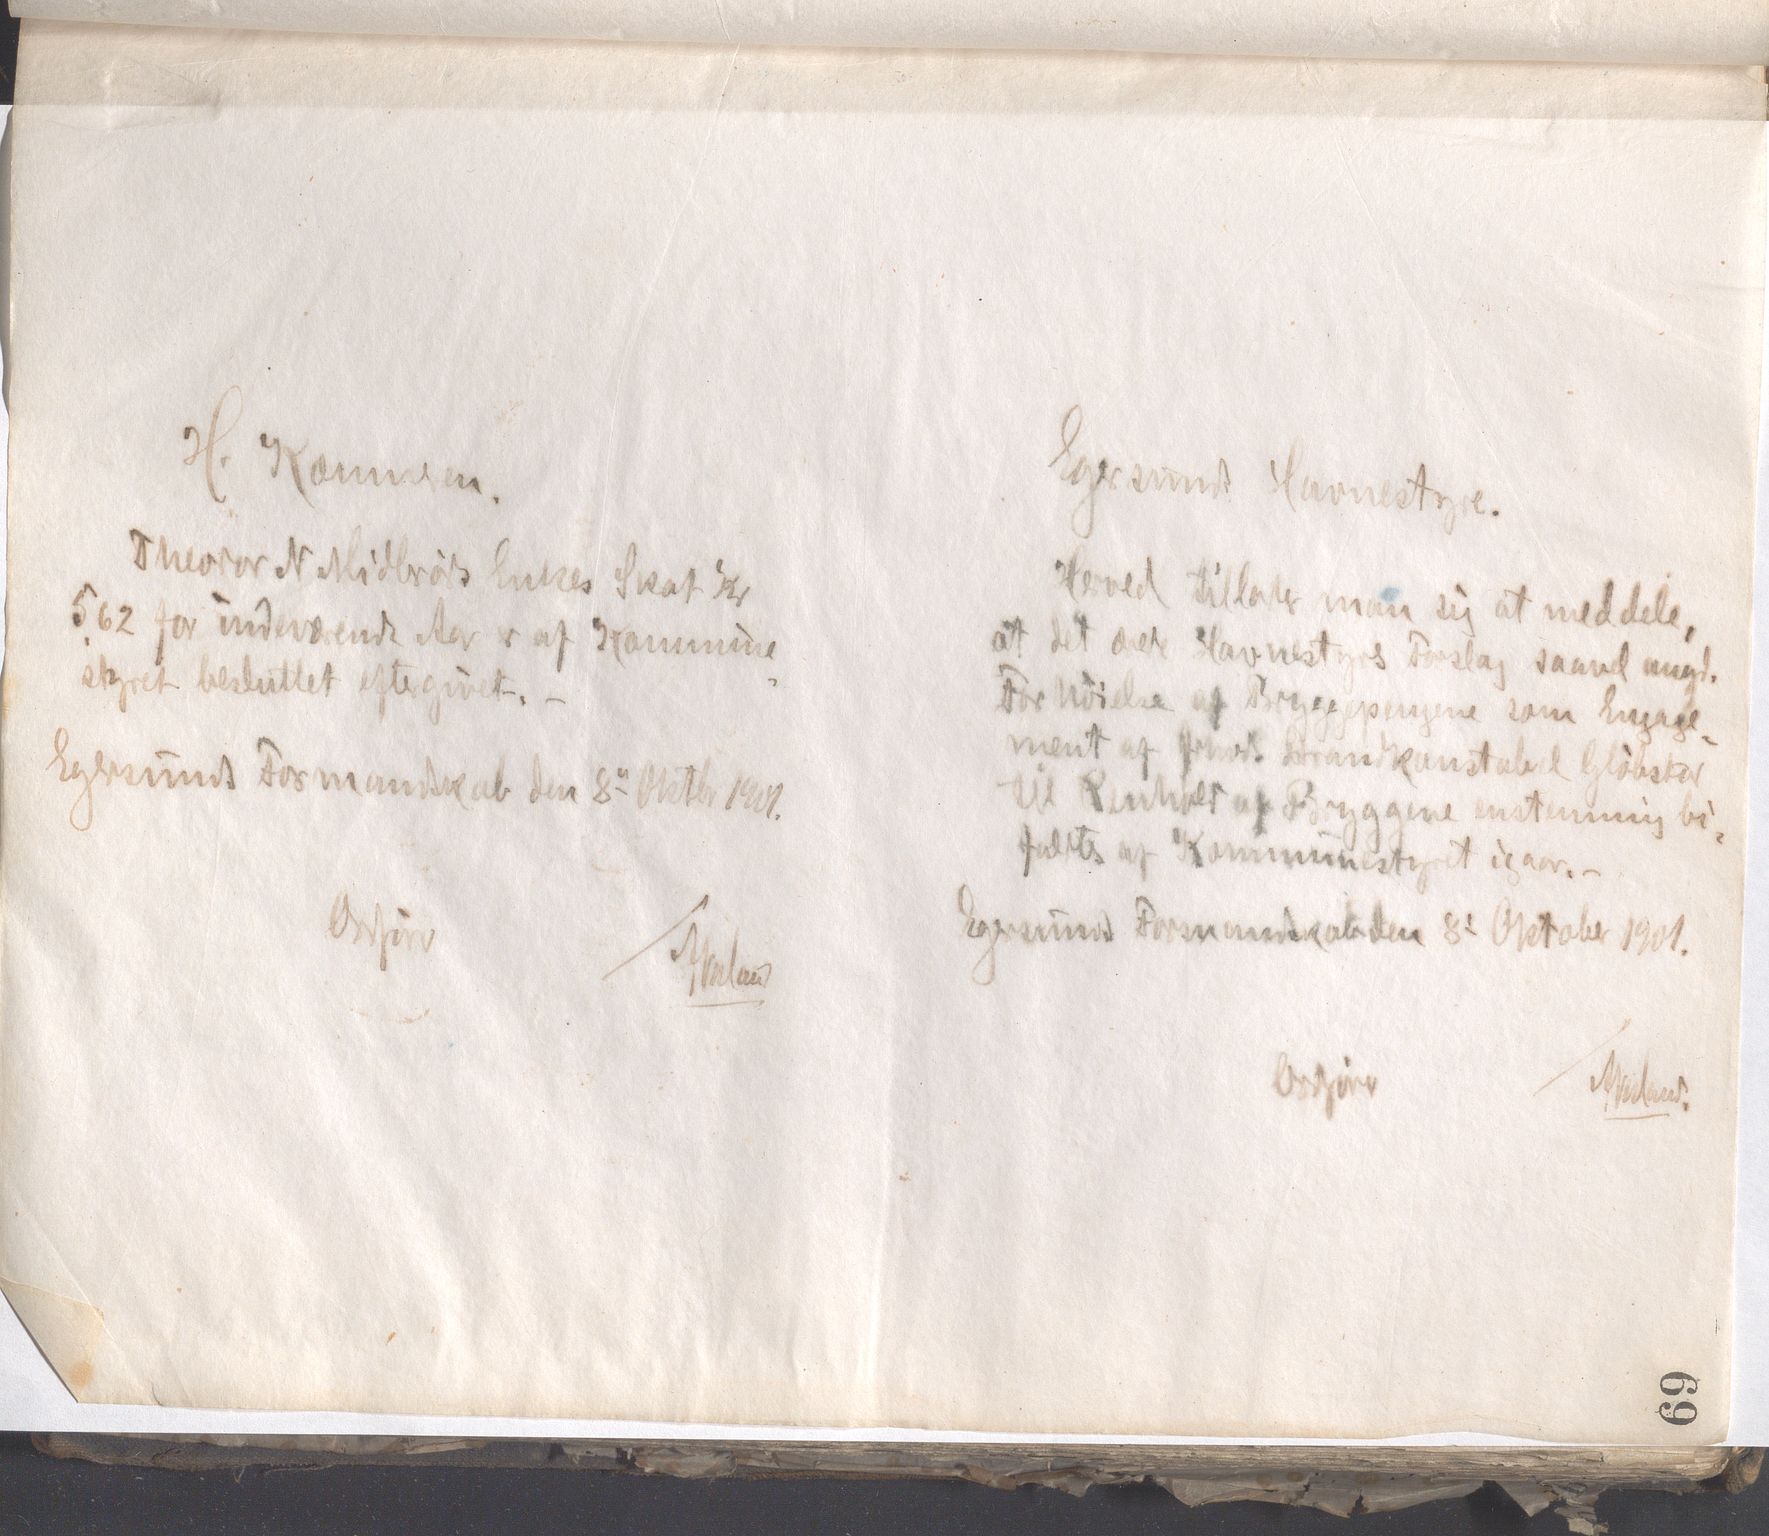 H. Kæmneren.
Theodor N Midbrøds Enkes Skat Kr
5,62 for indeværende Aar er af Kommune-
styret besluttet eftergivet. –
Egersunds Formandskab den 8de Oktbr 1901.
Egersunds Havnestyre.
Herved tillader man sig at meddele,
at det ærede Havnestyres Forslag saavel angd.
Forhøielse af Bryggepengene som Engage-
ment af Strandkonstabel
til Renhold af Bryggene enstemmig bi-
faldtes af Kommunestyret igaar. –
Egersunds Formandskab den 8de Oktober 1901.
69